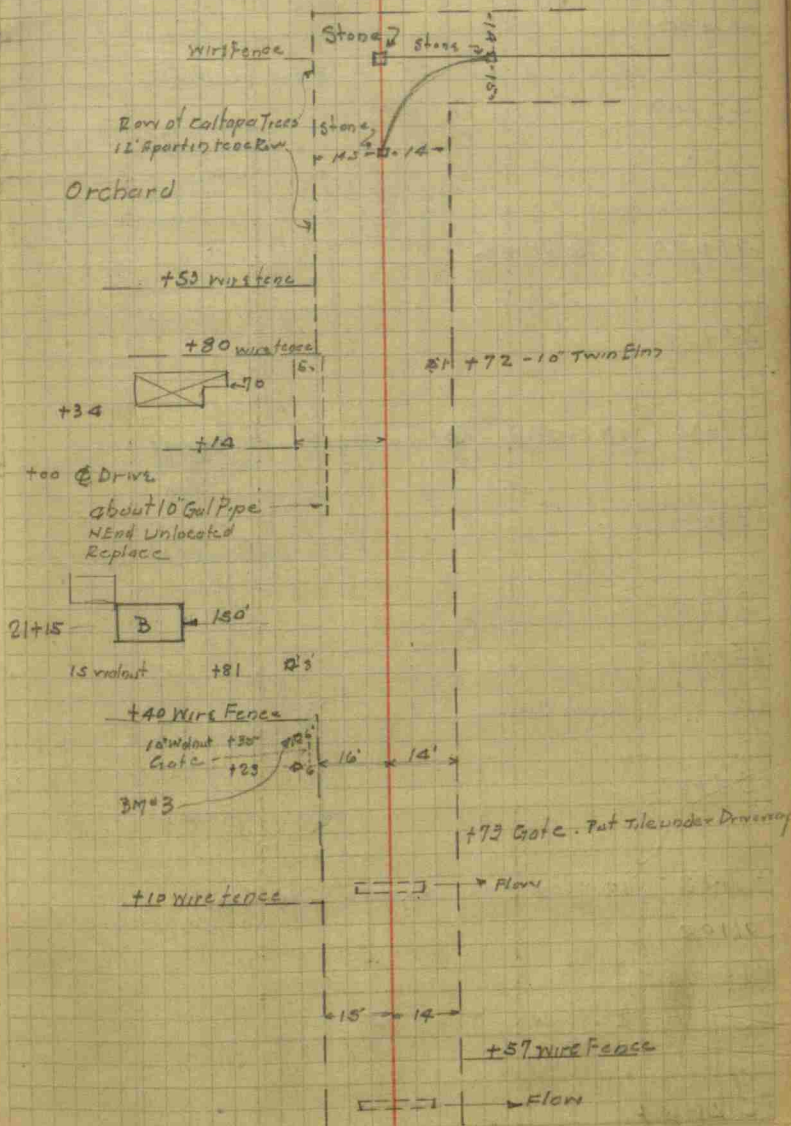 Stone
Wire Fence
Stone
14
15
Row of Caltopa Trees
Stone
12' Apart in fence Row
14.5
14
Orchard
+53 Wire fenc
+80 wire fence
+72 - 10" Twin Elm
70
+34
+14
+00 ℄ Drive
about 10" Gal Pipe
N End Unlocated
Replace
21+15
B
150'
15 walnut +81 3'
+40 Wire Fence
10" Walnut +35
Gate
+23
6
16'
14'
BM#3
+73 Gate. Put Tile under Driveway
Flow
+10 wire fence
15'
14
+57 wire Fence
Flow